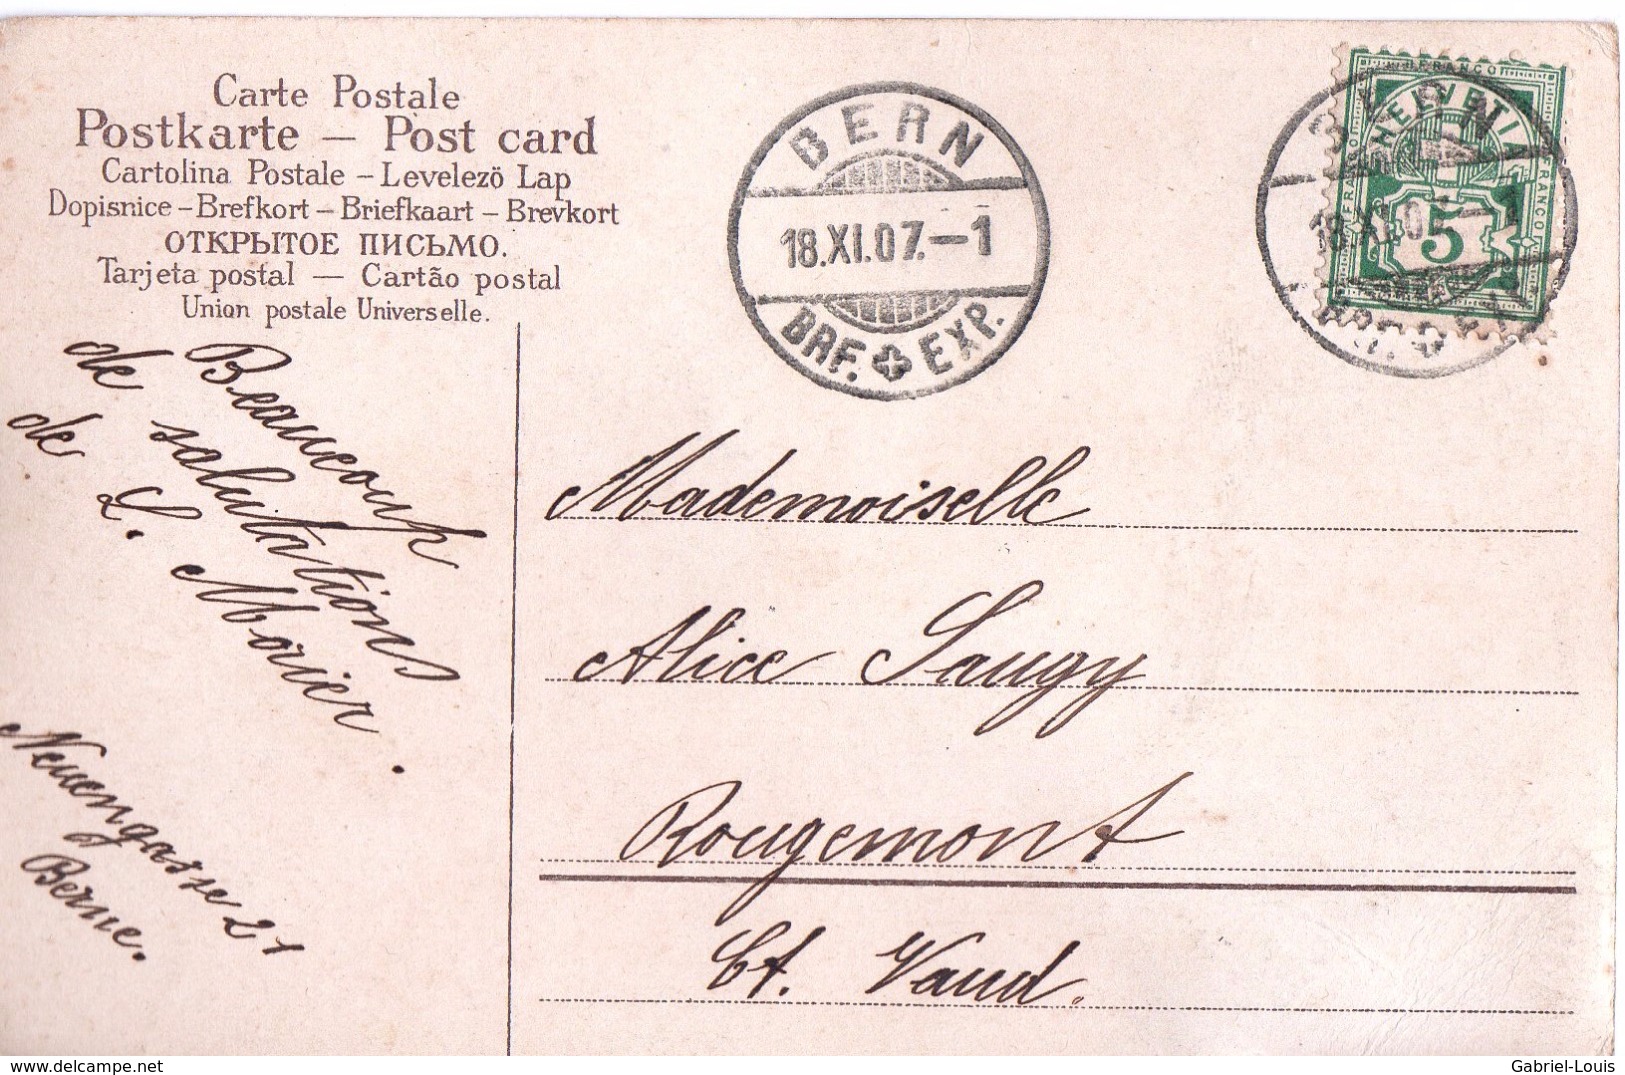 Carte Postale
Postkarte — Post card
Cartolina Postale – Levelezö Lap
Dopisnice – Brefkort – Briefkaart – Brevkort
ОТКРЫТОЕ ПИСЬМО.
Tarjeta postal — Cartão postal
Union postale Universelle.
BERN
18.XI.07.–1
BRF. EXP.
FRANCO
HELVETIA
FRANCO
FRANCO
5
BERN
18.XI.07.–1
BRF. EXP.
Beaucoup
de salutations
de L. Morier.
Neuengasse 21
Berne.
Mademoiselle
Alice Saugy
Rougemont
Ct. Vaud.
www.delcampe.net
Gabriel-Louis